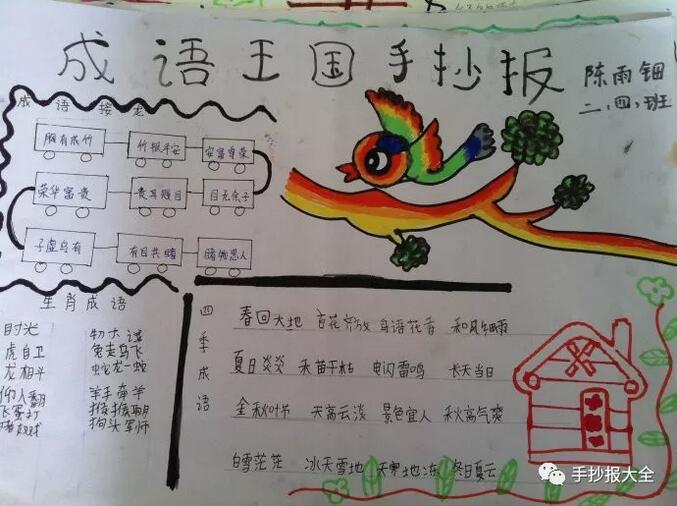 成语王国手抄报
陈雨钿
二、四、班
成语接龙
胸有成竹 竹报平安 安富尊荣
荣华富贵 贵耳贱目 目无余子
子虚乌有 有目共睹 睹物思人
生肖成语
时光
虎自卫 兔走乌飞
龙相斗 蛇龙一蛇
仰人翻 羊手牵羊
狗头军师
四季成语
春回大地 百花齐放 鸟语花香 和风细雨
夏日炎炎 禾苗干枯 电闪雷鸣 长天当日
金秋叶节 天高云淡 景色宜人 秋高气爽
白雪茫茫 冰天雪地 天寒地冻 冬日夏云
手抄报大全